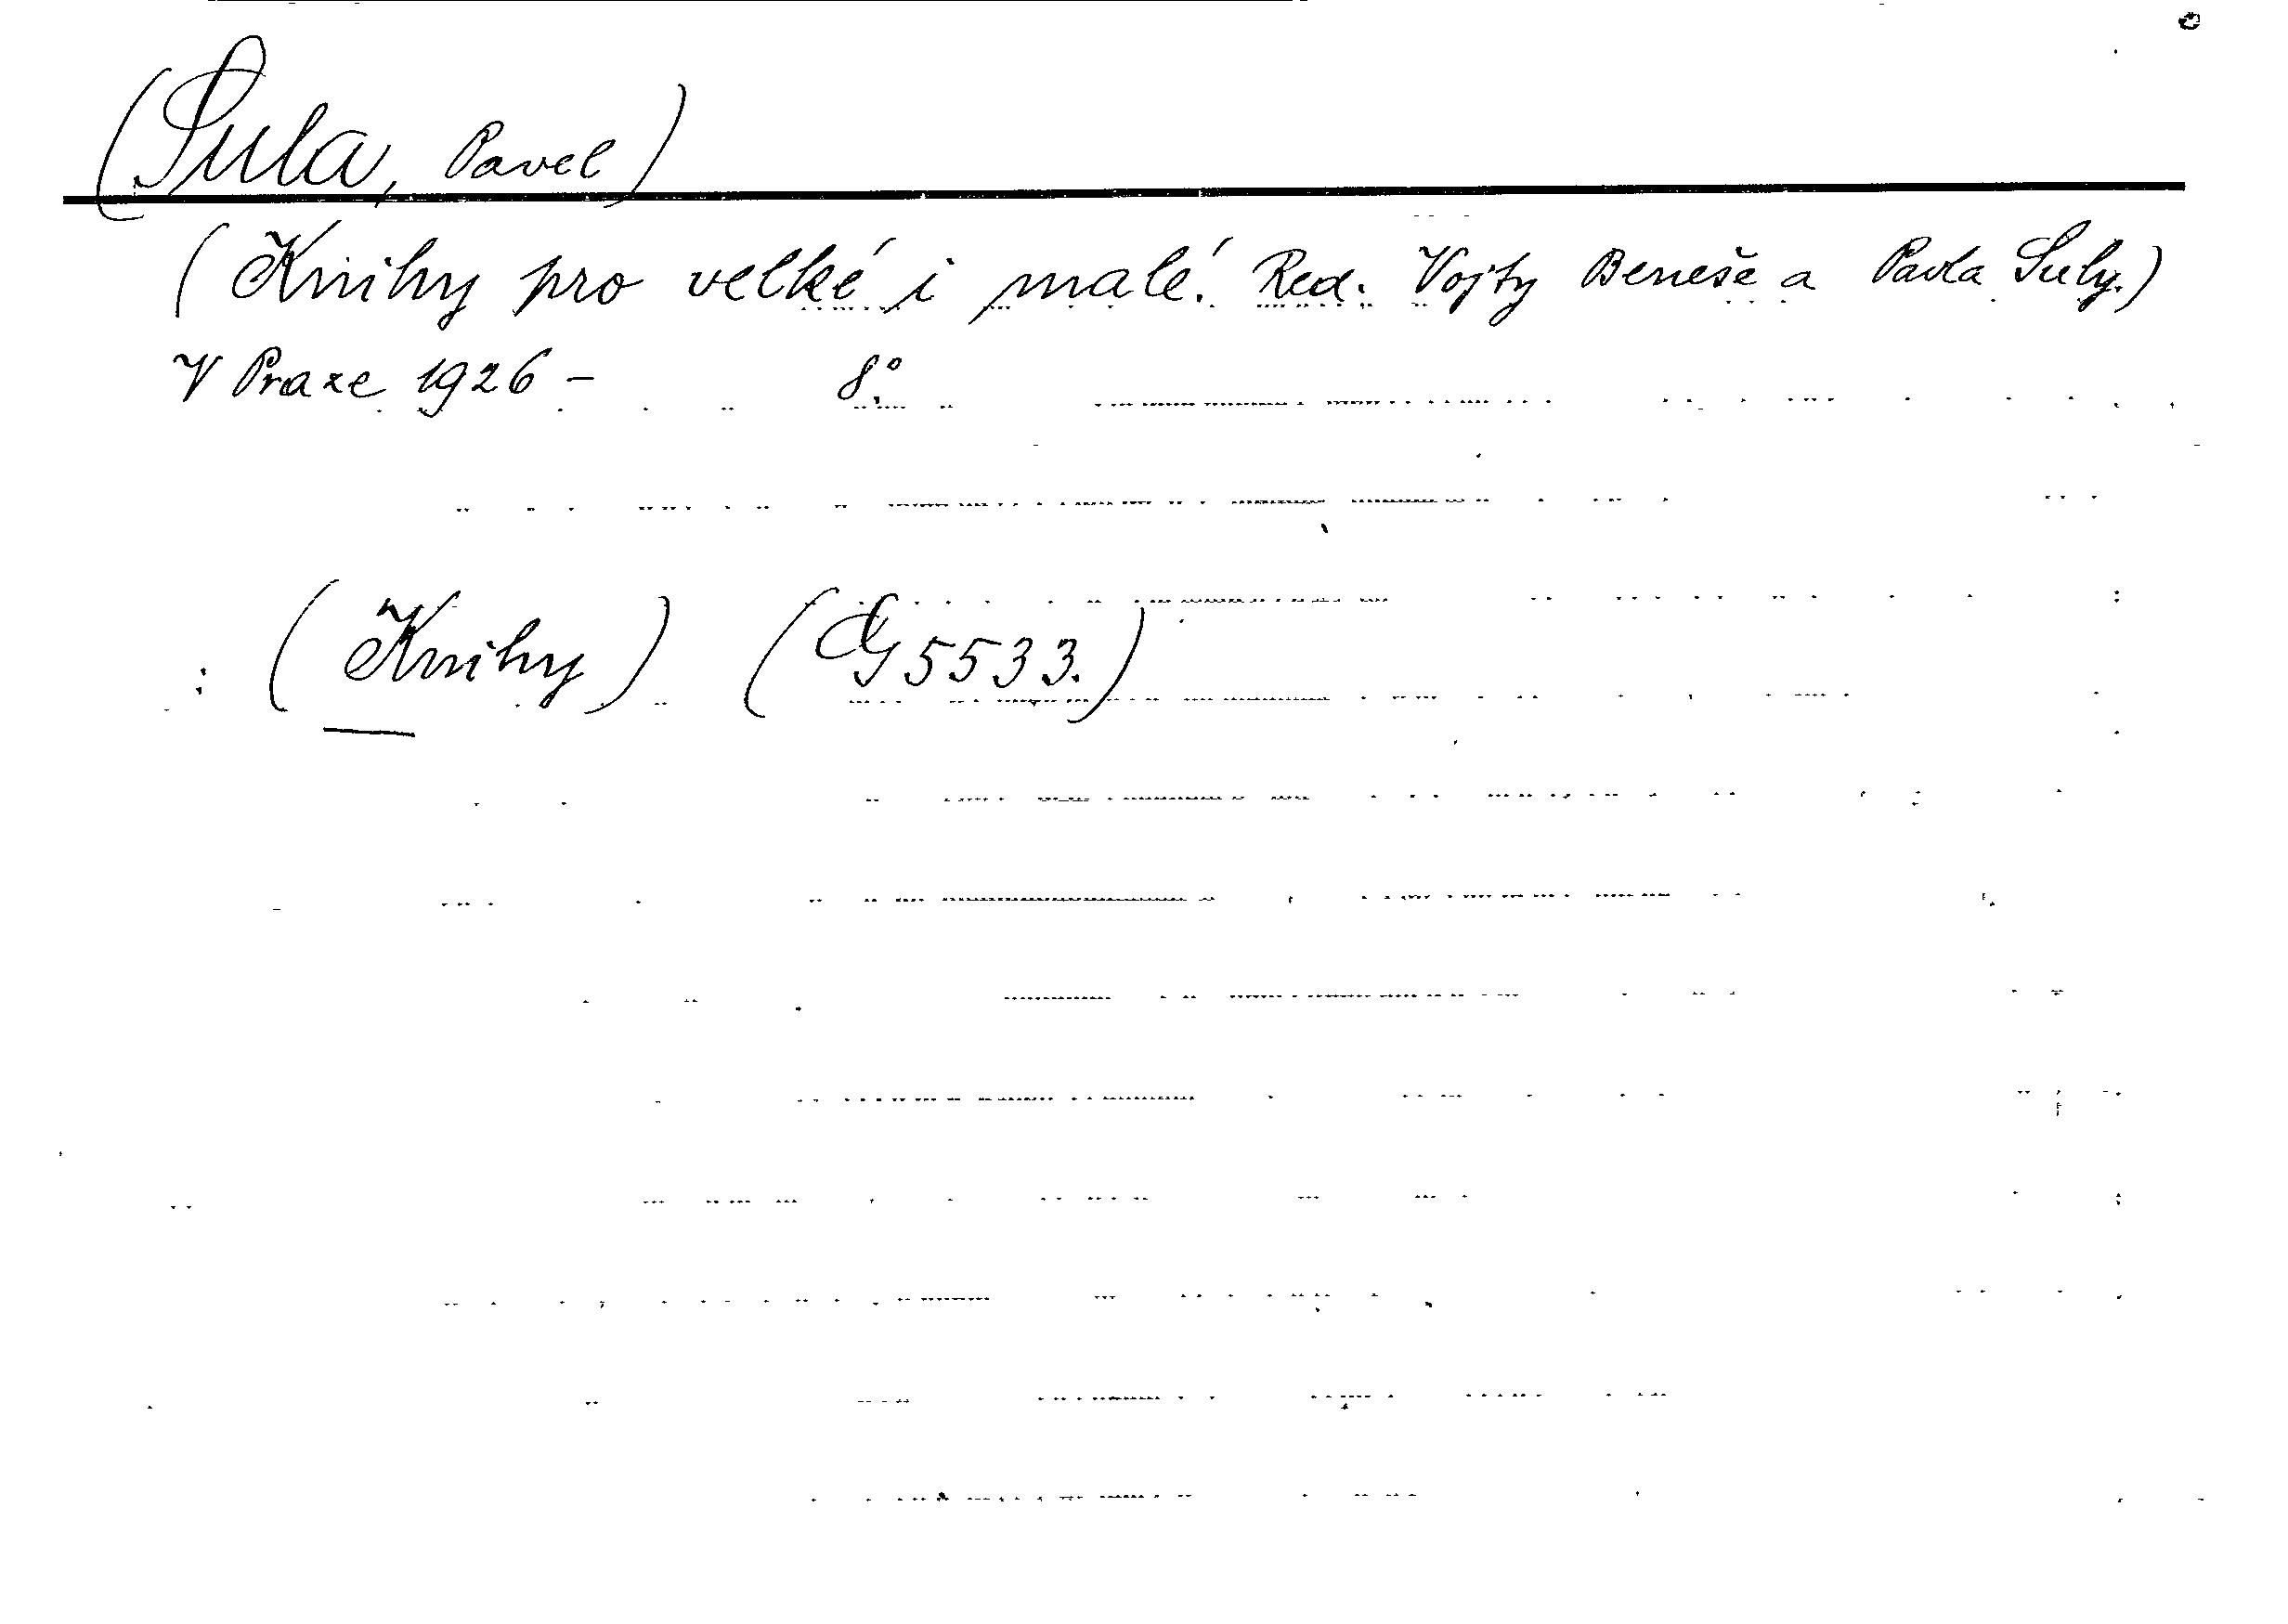 (Sula, Pavel)
(Knihy pro velké i malé. Red. Vojty Beneše a Pavla Suly.)
V Praze 1926 - 8°.
: (Knihy) (G 5533.)